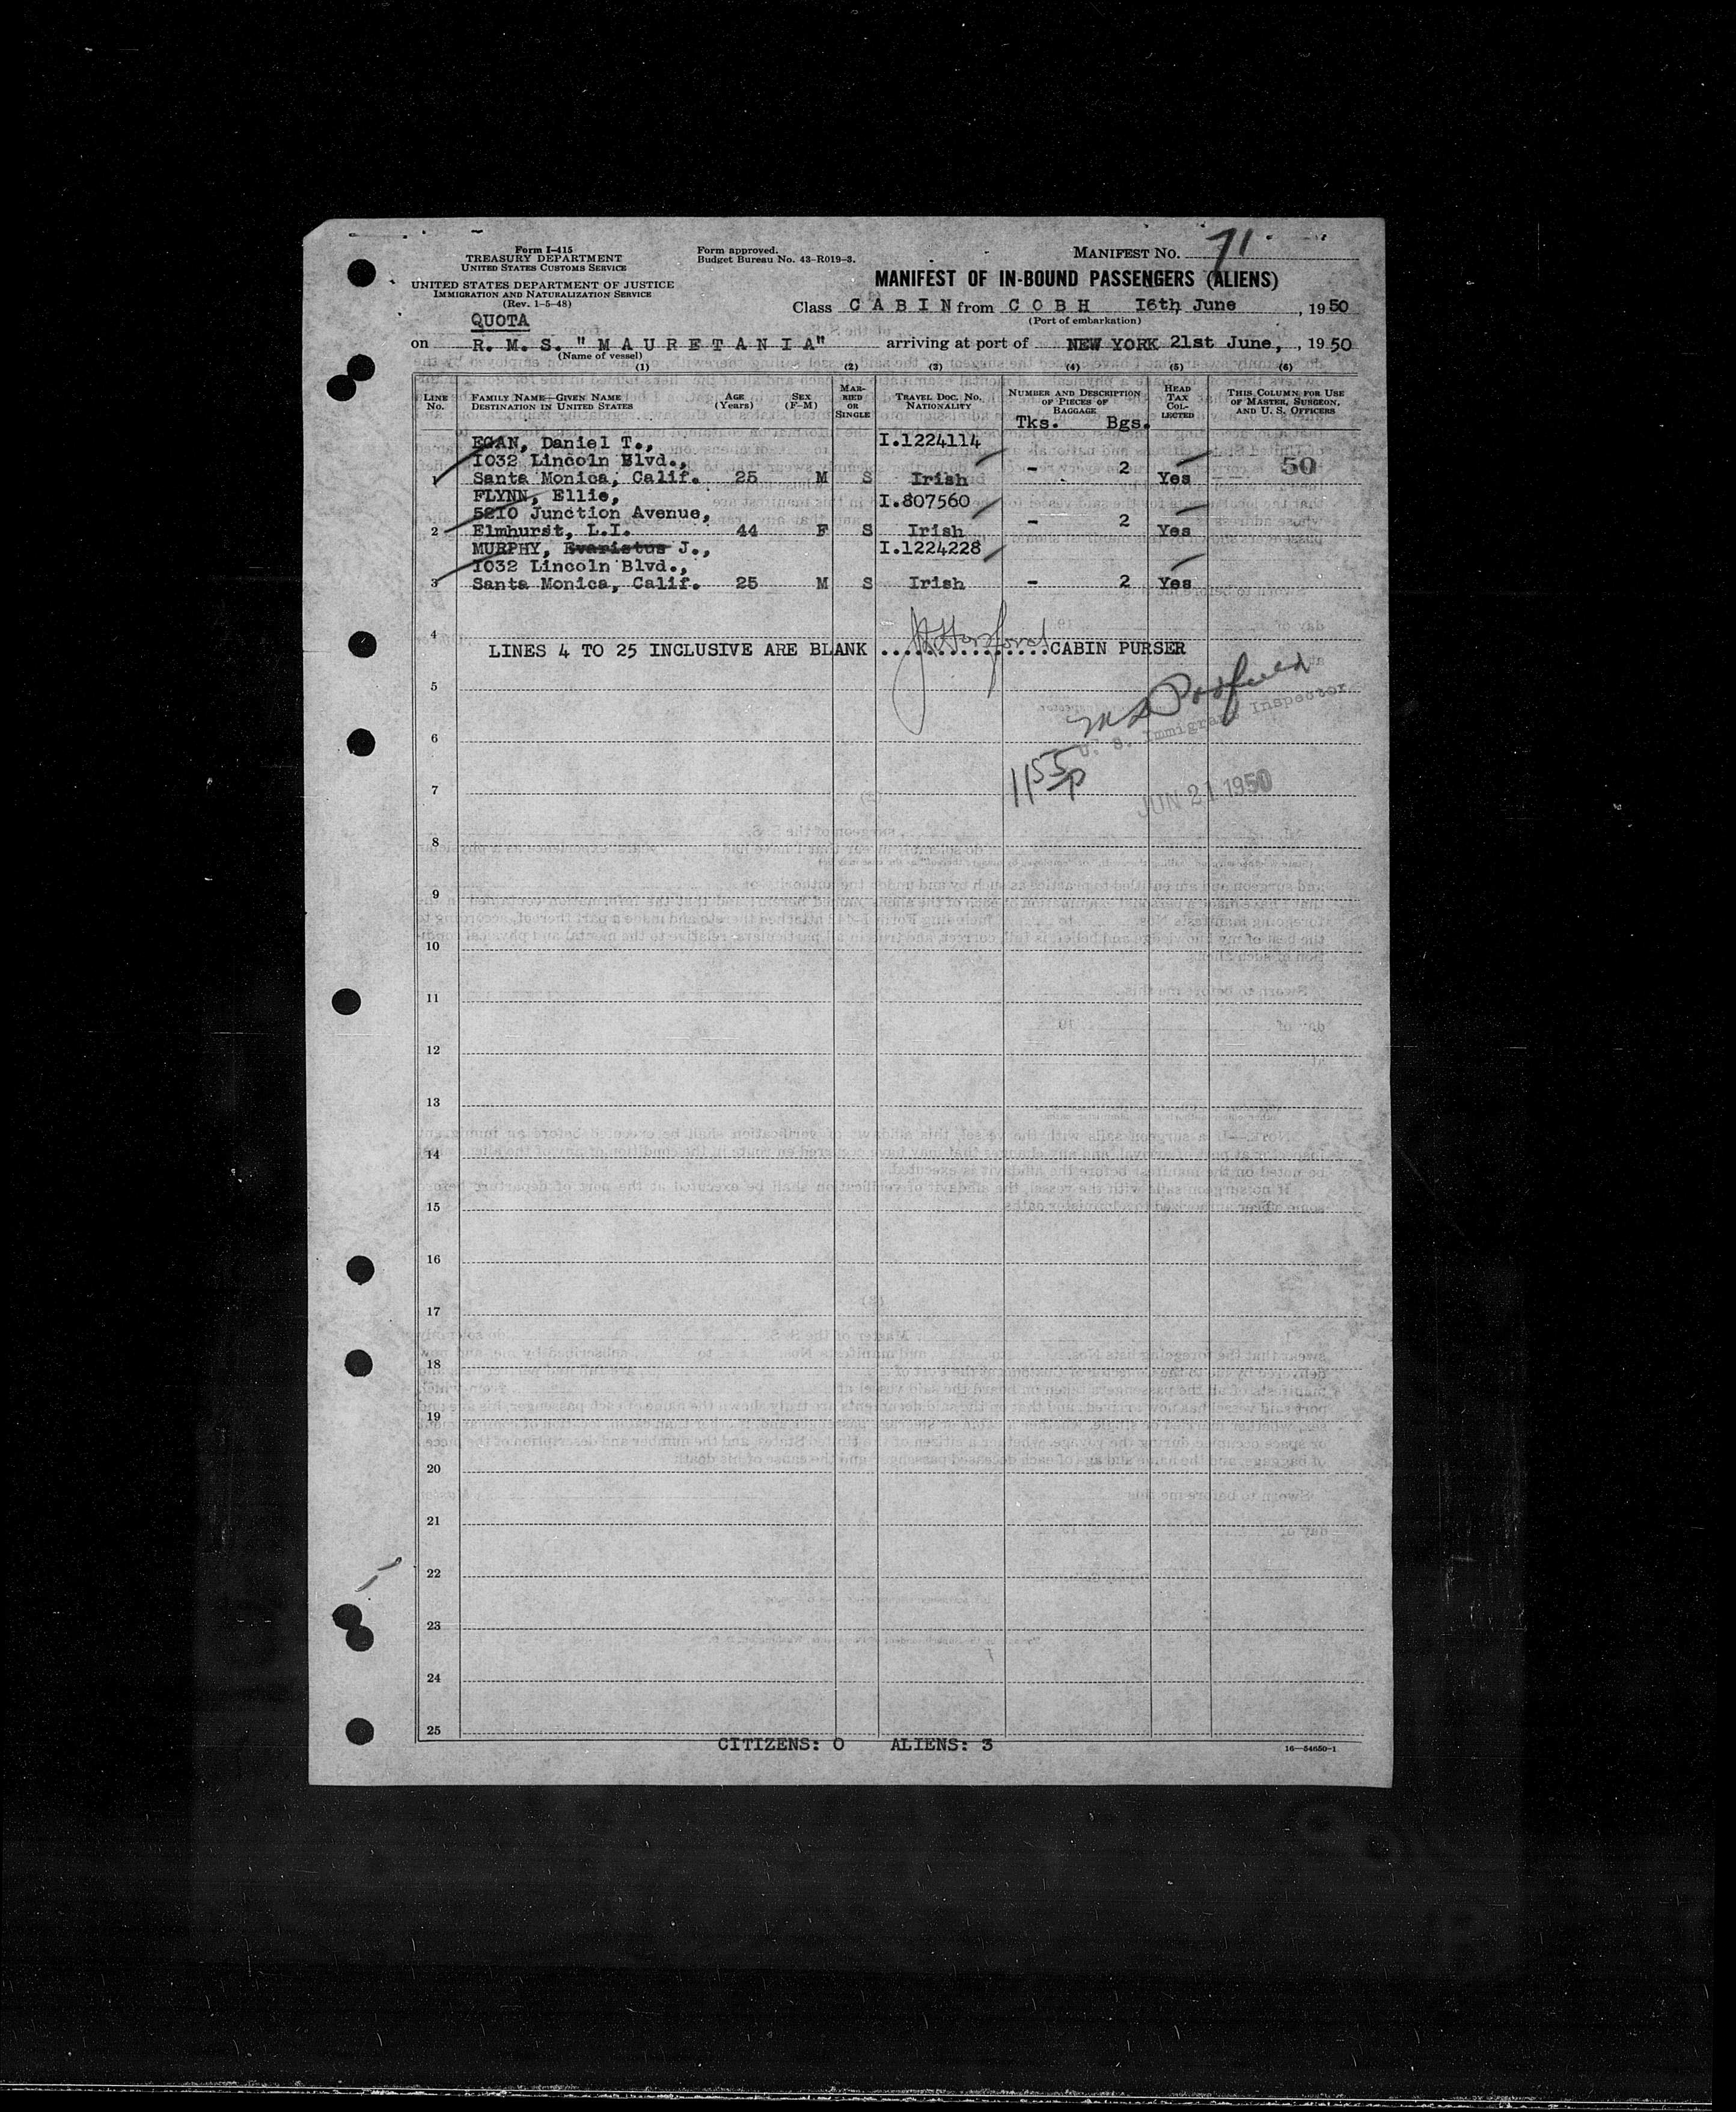 Form I-415
TREASURY DEPARTMENT
UNITED STATES CUSTOMS SERVICE
UNITED STATES DEPARTMENT OF JUSTICE
IMMIGRATION AND NATURALIZATION SERVICE
(Rev. 1-5-48)
QUOTA
Form approved.
Budget Bureau No. 43-R019-3.
MANIFEST NO. 71
MANIFEST OF IN-BOUND PASSENGERS (ALIENS)
Class C A B I N from C O B H I6th June, 1950
(Port of embarkation)
on R. M. S. "M A U R E T A N I A" arriving at port of NEW YORK 21st June, , 1950
(Name of vessel)
(1) (2) (3) (4) (5) (6)
LINE No. FAMILY NAME—GIVEN NAME DESTINATION IN UNITED STATES AGE (Years) SEX (F-M) MARRIED OR SINGLE TRAVEL DOC. NO. NATIONALITY NUMBER AND DESCRIPTION OF PIECES OF BAGGAGE HEAD TAX COLLECTED THIS COLUMN FOR USE OF MASTER, SURGEON, AND U. S. OFFICERS
Tks. Bgs.
EGAN, Daniel T., I.1224114
I032 Lincoln Blvd., 50
1 Santa Monica, Calif. 25 M S Irish - 2 Yes
FLYNN, Ellie, I.807560
52I0 Junction Avenue,
2 Elmhurst, L.I. 44 F S Irish - 2 Yes
MURPHY, Evaristus J., I.1224228
I032 Lincoln Blvd.,
3 Santa Monica, Calif. 25 M S Irish - 2 Yes
4
LINES 4 TO 25 INCLUSIVE ARE BLANK ...............CABIN PURSER
5
U. S. Immigrant Inspector
6
1155p
7
JUN 21 1950
8
9
10
11
12
13
14
15
16
17
18
19
20
21
22
23
24
25
CITIZENS: 0 ALIENS: 3
16—54650-1